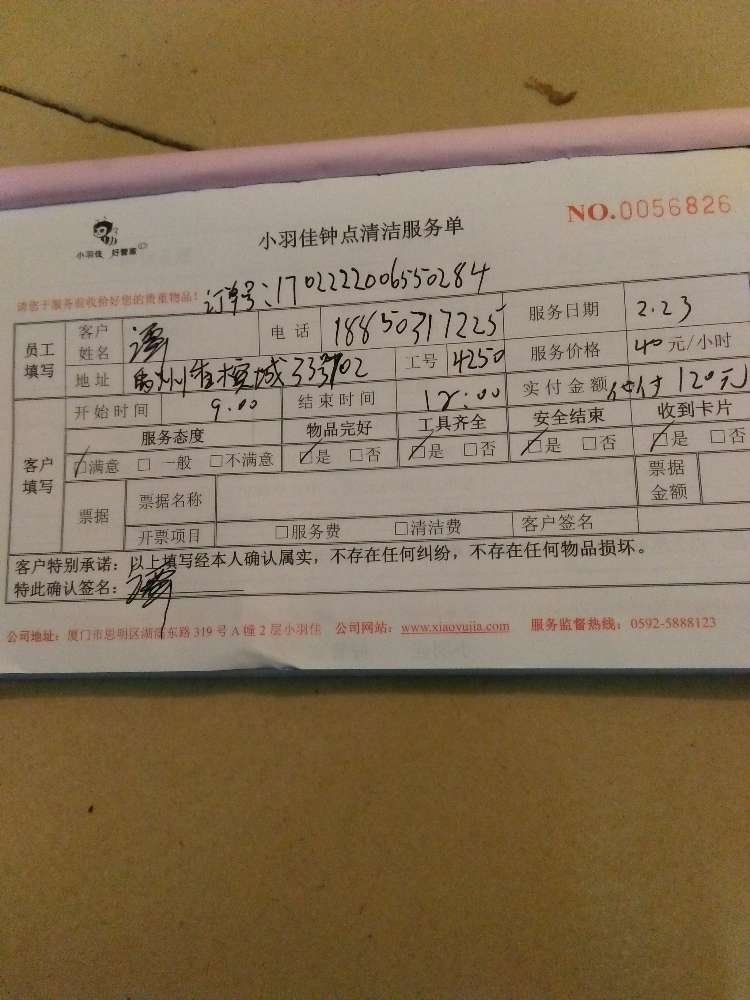 小羽佳 好管家
小羽佳钟点清洁服务单
NO.0056826
请您于服务前收拾好您的贵重物品！ 订单号：1702222006550284
员工填写 客户姓名 谭 电话 18850317225 服务日期 2.23
地址 禹州 城 333 702 工号 4250 服务价格 40 元/小时
客户填写 开始时间 9.00 结束时间 12:00 实付金额 120元
服务态度 物品完好 工具齐全 安全结束 收到卡片
☑满意 □一般 □不满意 ☑是 □否 ☑是 □否 ☑是 □否 ☑是 □否
票据 票据名称 票据金额
开票项目 □服务费 □清洁费 客户签名
客户特别承诺：以上填写经本人确认属实，不存在任何纠纷，不存在任何物品损坏。
特此确认签名：谭
公司地址：厦门市思明区湖滨东路 319 号 A 幢 2 层小羽佳 公司网站：www.xiaoyujia.com 服务监督热线：0592-5888123